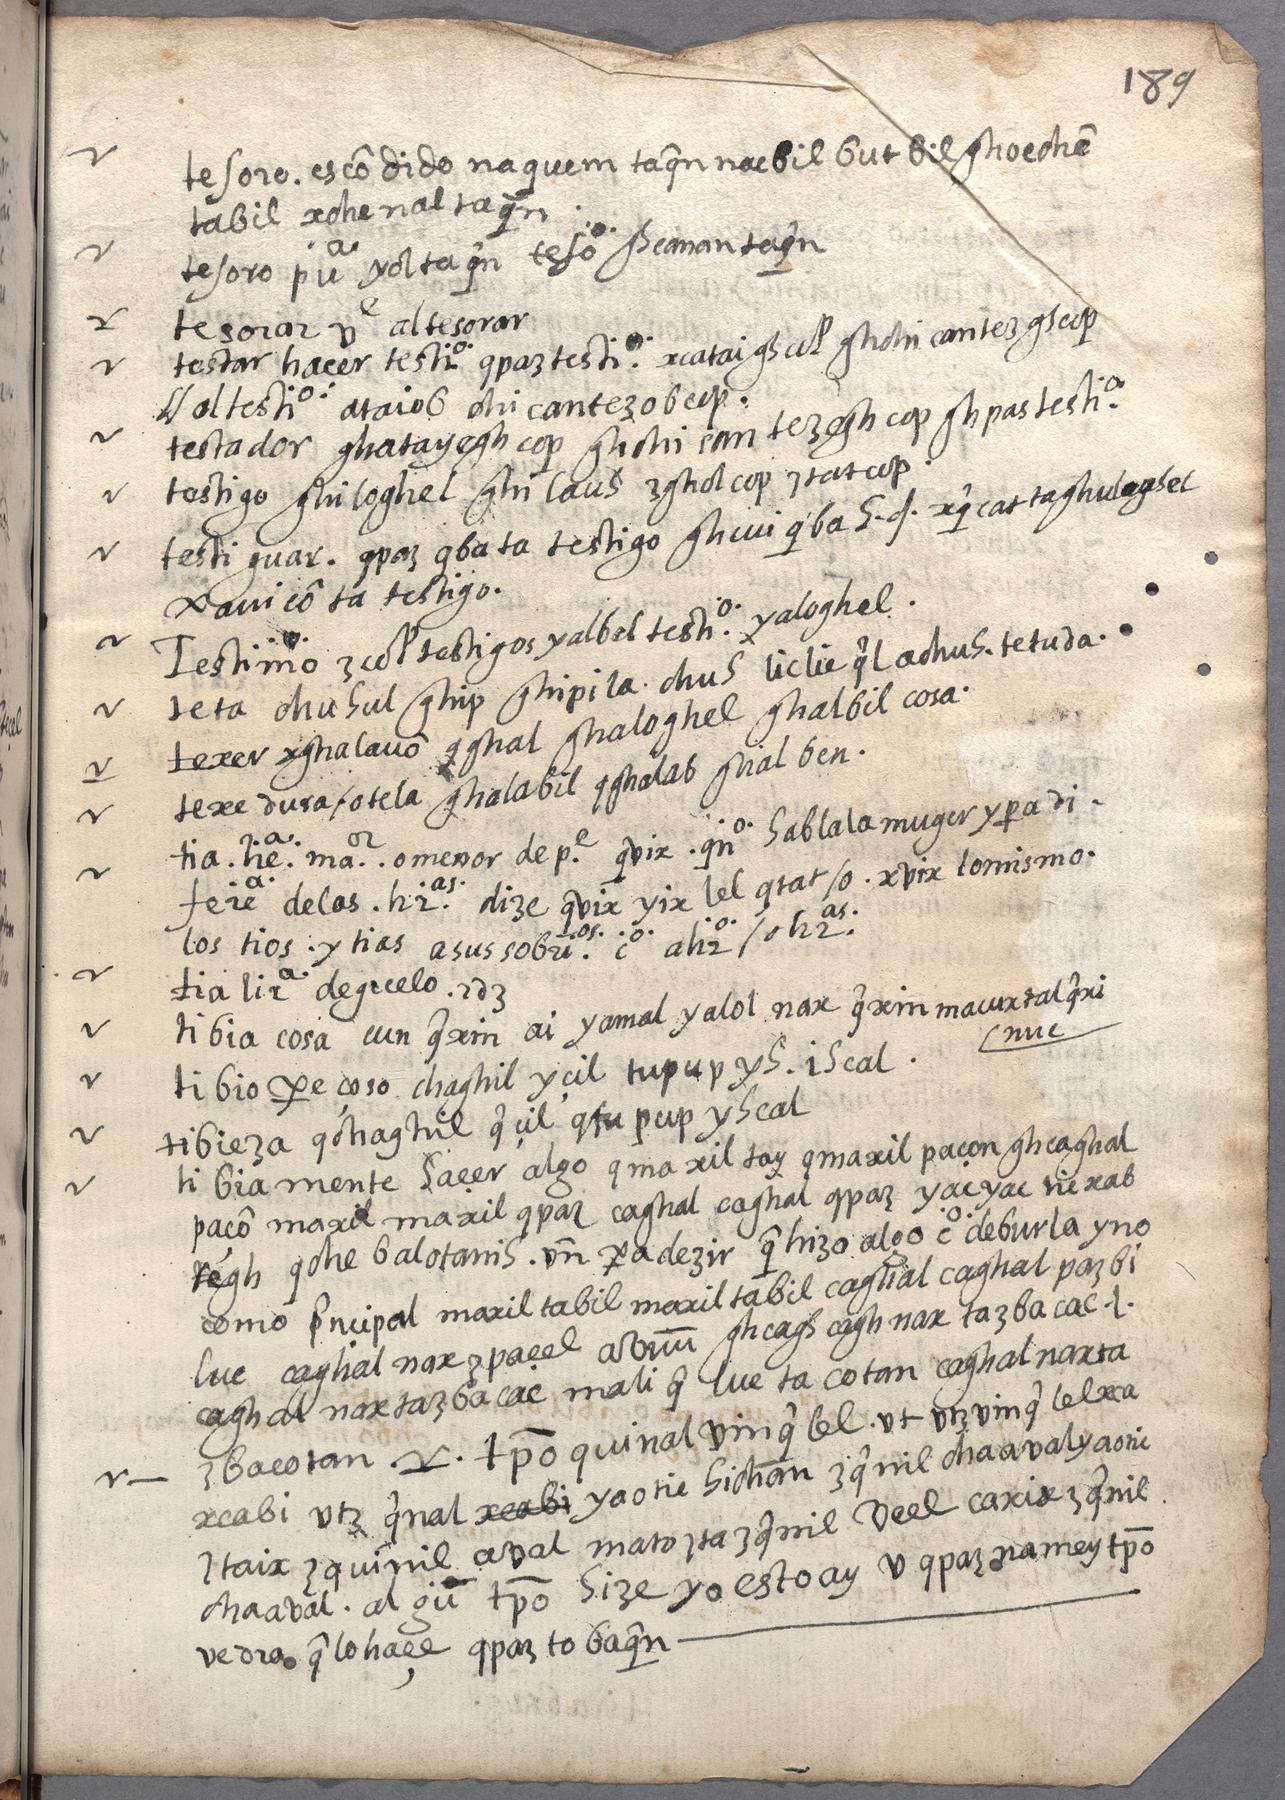 189
tesoro. escōdido naquem taq̄n nacbil but bil ghoechē
tabil xchenal taq̄n.
tesoro pu.ª yol taq̄n tesō.º hcanan taq̄n
tesorar v.ᵉ al tesorar
testar hacer testi.º qpaz testi.º xcatai ghcop ghchi cantez ghcop
V al testi.º ataiob chi cantezob cop.
testador ghatayegh cop ghchi can tezegh cop ghpas testi.º
testigo ghiloghel ghi lauh zghol cop ztat cop.
testiguar. qpaz qba ta testigo ghcui q̄ba h.
xaui cō ta testigo.
Testimo.º z cop testigos yalbel testi.º yaloghel.
teta chu hul ghip ghipila. chuh liclic q̄l achuh. tetuda.
texer xghalauō qghal ghaloghel ghalbil cosa.
texedura / o tela ghalabil qghalab ghal ben.
tia. he.ª ma.ᵒʳ o menor de p.ᵉ q̄vix. qn.º habla la muger y pa di-
ferē.ª de las. hr.ᵃˢ dize q̄vix yix lel qtat / o. xvix lo mismo.
los tios. y tias a sus sobri.ᵒˢ c.º a hr.º / o hr.ᵃˢ
tia hr.ª de guelo.
tibia cosa cun q̄xin ai yamal yalol nax q̄xin macuxtal q̄xi
nuc
tibio pe coso chaghil yçil tupup yh. ihcal.
tibieza qchaghil q̄çil qtupcup yhcal
tibiamente hacer algo qmaxil tay qmaxil paçon ghcaghal
paçō maxil maxil qpaz caghal caghal qpaz yac yac nixab
tegh qche balotanih. vn̄ pa dezir q̄ hizo algo c.º de burla y no
como pncipal maxil tabil maxil tabil caghal caghal pazbi
luc caghal nax zpacel ghcagh cagh nax tazba cac
caghal nax tazba cac mali q̄ luc ta cotan caghal naxta
zbacotan. tp̄o quinal vinq̄ lel. vt vtz vinq̄ lelxa
xcabi vtz q̄nal xcabi yaotic hichan zq̄nil chaaval yaotic
ztaix zquinil aval mato zta zq̄nil veel caxix zq̄nil
chaaval. algū tp̄o hize yo esto ay v qpaz namey tp̄o
vedra. q̄ lo haçe qpaz to baq̄n